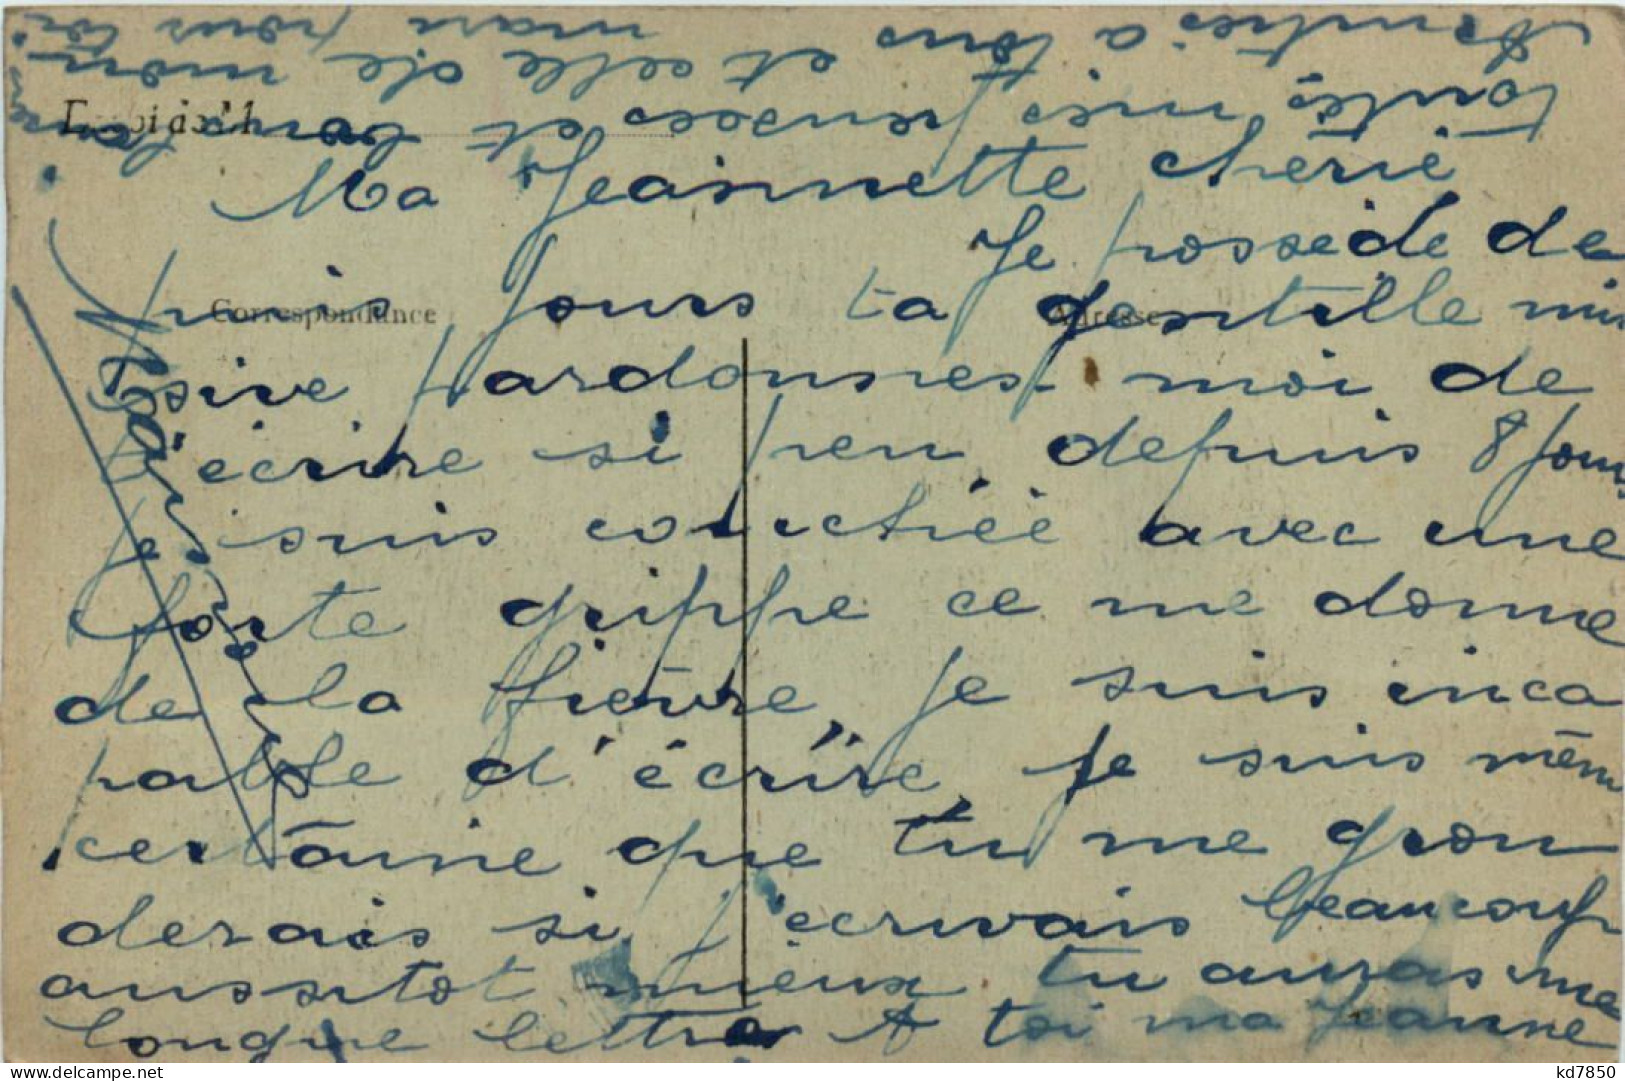 Ma Jeannette chérie
Je possède de
puis jours ta gentille mis
sive pardonnes-moi de
t'écrire si peu, depuis 8 jours
Je suis couchée avec une
forte grippe ce me donne
de la fièvre, Je suis inca
pable d'écrire, je suis même
certaine que tu me gron
derais si j'écrivais beaucoup
aussitot mieux tu auras une
longue lettre A toi ma Jeanne
toutes mes pensées et
Amitiés à tous et celle de mon
mari pour toi
Correspondance
Adresse
delcampe.net
kd7850